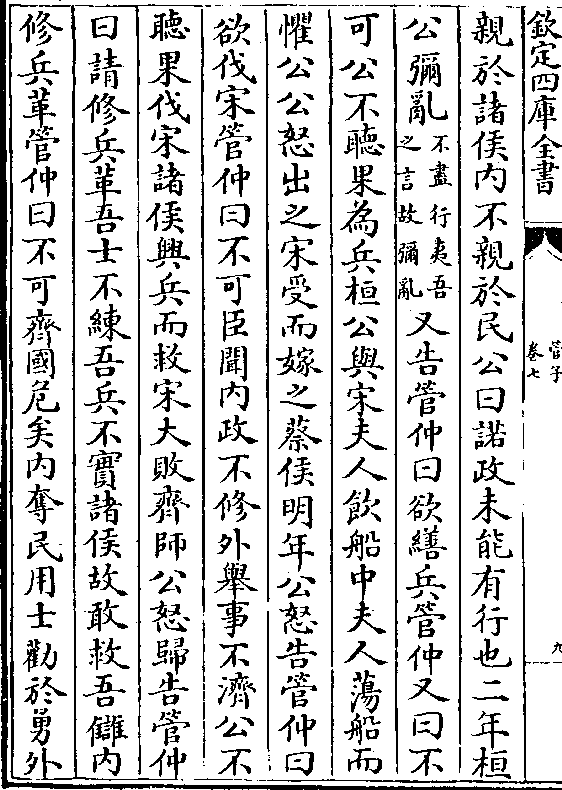 欽定四庫全書
管子
卷七
九
親於諸侯内不親於民公曰諾政未能有行也二年桓
公彌亂不盡行夷吾之言故彌亂又告管仲曰欲繕兵管仲又曰不
可公不聽果為兵桓公與宋夫人飲船中夫人蕩船而
懼公公怒出之宋受而嫁之蔡侯明年公怒告管仲曰
欲伐宋管仲曰不可臣聞内政不修外舉事不濟公不
聽果伐宋諸侯興兵而救宋大敗齊師公怒歸告管仲
曰請修兵革吾士不練吾兵不實諸侯故敢救吾讎内
修兵革管仲曰不可齊國危矣内奪民用士勸於勇外